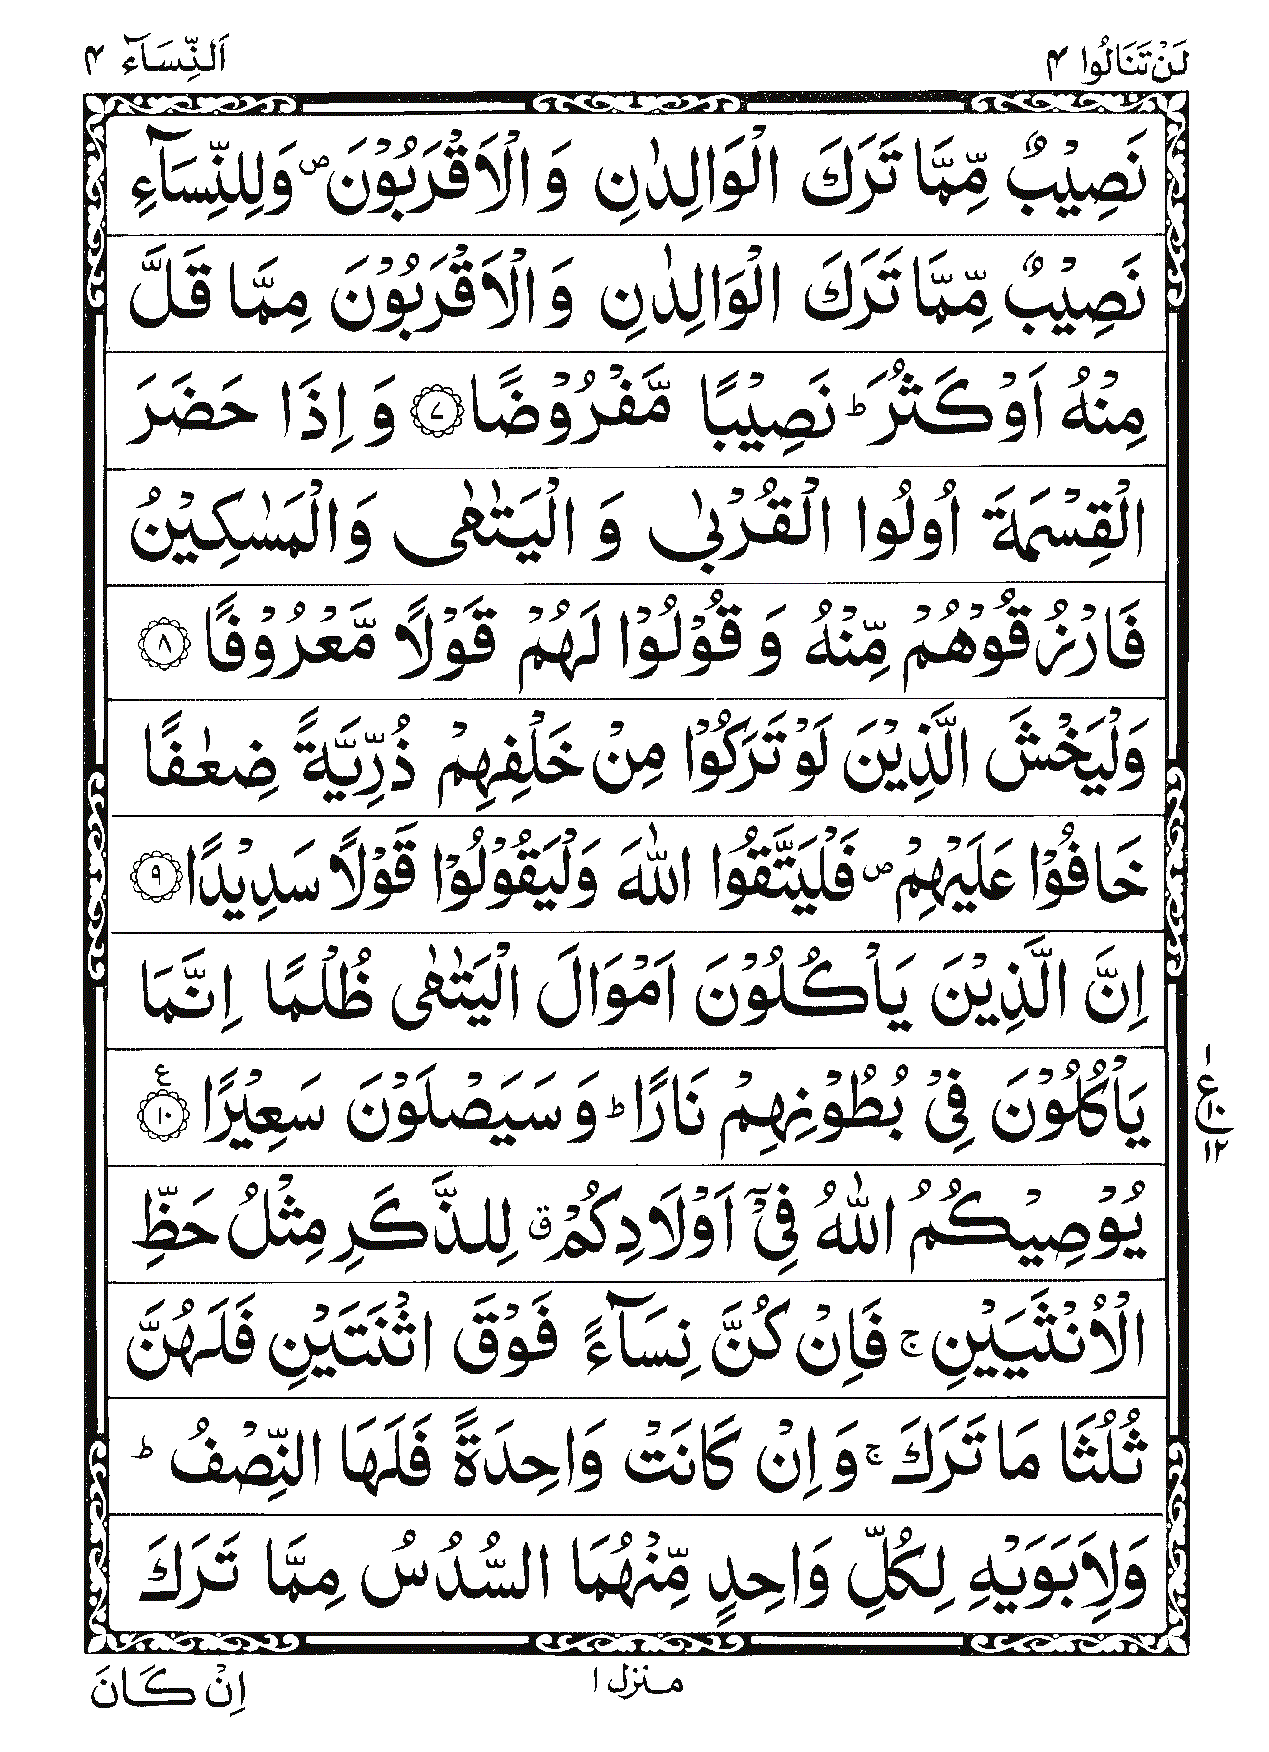 لَنْ تَنَالُوا ۴
اَلنِّسَآء ۴
نَصِیْبٌ مِّمَّا تَرَكَ الْوَالِدٰنِ وَ الْاَقْرَبُوْنَ ۪ وَلِلنِّسَآءِ
نَصِیْبٌ مِّمَّا تَرَكَ الْوَالِدٰنِ وَ الْاَقْرَبُوْنَ مِمَّا قَلَّ
مِنْهُ اَوْ كَثُرَ ؕ نَصِیْبًا مَّفْرُوْضًا ۷ وَ اِذَا حَضَرَ
الْقِسْمَةَ اُولُوا الْقُرْبٰی وَ الْیَتٰمٰی وَ الْمَسٰكِیْنُ
فَارْزُقُوْهُمْ مِّنْهُ وَ قُوْلُوْا لَهُمْ قَوْلًا مَّعْرُوْفًا ۸
وَلْیَخْشَ الَّذِیْنَ لَوْ تَرَكُوْا مِنْ خَلْفِهِمْ ذُرِّیَّةً ضِعٰفًا
خَافُوْا عَلَیْهِمْ ۪ فَلْیَتَّقُوا اللّٰهَ وَلْیَقُوْلُوْا قَوْلًا سَدِیْدًا ۹
اِنَّ الَّذِیْنَ یَاْكُلُوْنَ اَمْوَالَ الْیَتٰمٰی ظُلْمًا اِنَّمَا
یَاْكُلُوْنَ فِیْ بُطُوْنِهِمْ نَارًا ؕ وَ سَیَصْلَوْنَ سَعِیْرًا ۱۰ ع
۱
ع ۱۰
۱۲
یُوْصِیْكُمُ اللّٰهُ فِیْۤ اَوْلَادِكُمْ ۗق لِلذَّكَرِ مِثْلُ حَظِّ
الْاُنْثَیَیْنِ ۚ فَاِنْ كُنَّ نِسَآءً فَوْقَ اثْنَتَیْنِ فَلَهُنَّ
ثُلُثَا مَا تَرَكَ ۚ وَ اِنْ كَانَتْ وَاحِدَةً فَلَهَا النِّصْفُ ؕ
وَلِاَبَوَیْهِ لِكُلِّ وَاحِدٍ مِّنْهُمَا السُّدُسُ مِمَّا تَرَكَ
منزل ۱
اِنْ كَانَ